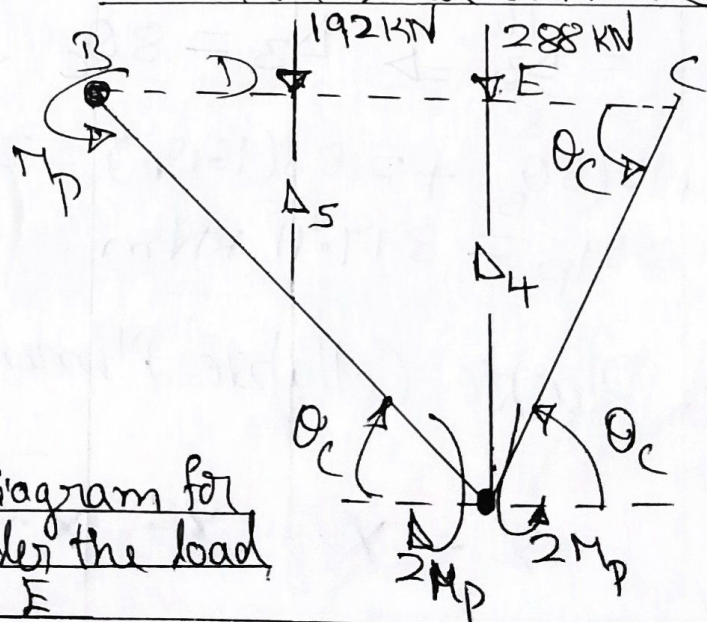 192KN
288KN
B
D
E
C
Mp
θC
Δ5
Δ4
θC
θC
2Mp
2Mp
iagram for
der the load
E